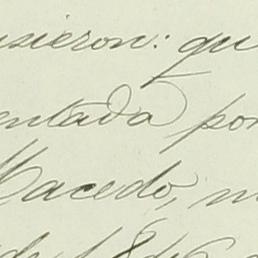 usieron: qu
entada por
Macedo, n
de 1846